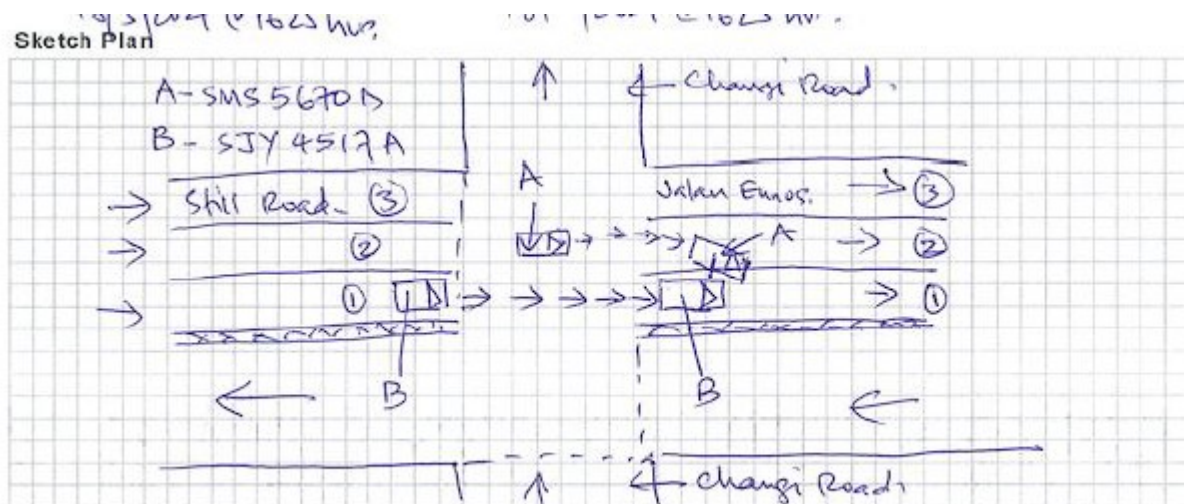 @ 1625 hrs.
Sketch Plan
A - SMS 5670 D
B - SJY 4517 A
Changi Road.
A
Still Road. ③
Jalan Eunos. ③
② A ②
① ①
B B
Changi Road.